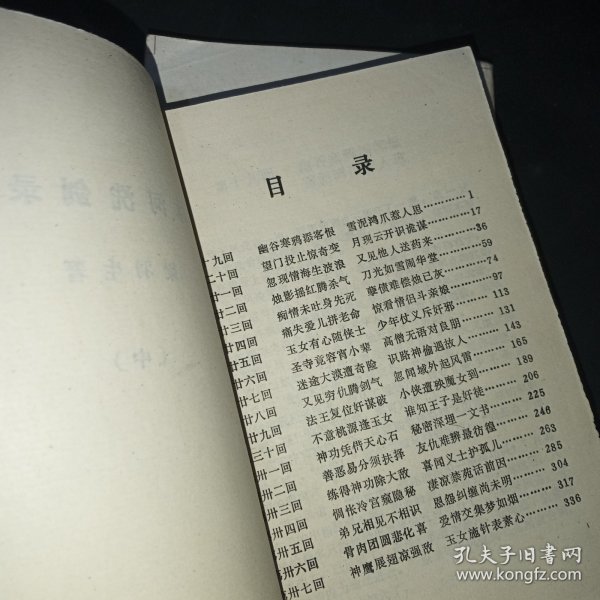 目 录
十九回 幽谷寒鸦添客恨 雪泥鸿爪惹人思…………1
二十回 望门投止惊奇变 月现云开识诡谋…………17
廿一回 忽现情海生波浪 又见他人送药来…………36
廿二回 烛影摇红腾杀气 刀光如雪闹华堂…………59
廿三回 痴情未吐身先死 孽债难偿烛已灰…………74
廿四回 痛失爱儿拼老命 惊看情侣斗亲娘…………97
廿五回 玉女有心随侠士 少年仗义斥奸邪…………113
廿六回 圣寺竟容宵小辈 高僧无语对良朋…………131
廿七回 迷途大漠遭奇险 识路神偷遇故人…………143
廿八回 又见穷仇腾剑气 忽闻域外起风雷…………165
廿九回 法王复位奸谋破 小侠遭殃魔女到…………189
三十回 不意桃源逢玉女 谁知王子是奸徒…………206
卅一回 神功凭借天心石 秘密深埋一文书…………225
卅二回 善恶易分须抉择 友仇难辨最彷徨…………246
卅三回 练得神功除大敌 喜闻义士护孤儿…………263
卅四回 惆怅冷宫窥隐秘 凄凉禁苑话前因…………285
卅五回 弟兄相见不相识 恩怨纠缠尚未明…………304
卅六回 骨肉团圆悲化喜 爱情交集梦如烟…………317
卅七回 神鹰展翅凉强敌 玉女施针表素心…………336
孔夫子旧书网
www.kongfz.com